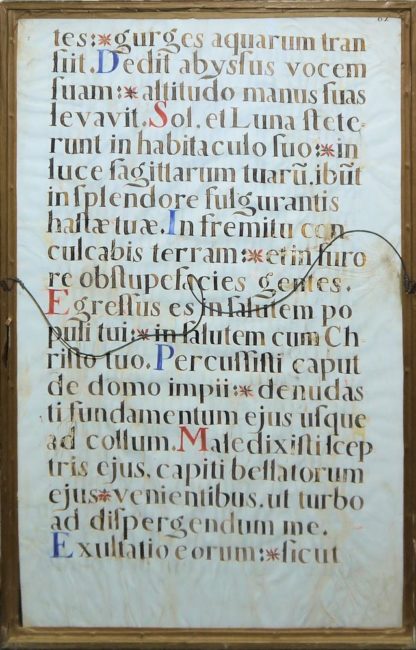 61
tes:*gurges aquarum tran
ſiit. Dedit abyſſus vocem
ſuam:*altitudo manus ſuas
levavit. Sol, et Luna ſtete-
runt in habitaculo ſuo:*in
luce ſagittarum tuarū, ibūt
in ſplendore fulgurantis
haſtæ tuæ. In fremitu con
culcabis terram:*et in furo
re obſtupefacies gentes.
Egreſſus es in ſalutem po
puli tui:*in ſalutem cum Ch-
riſto tuo. Percuſſiſti caput
de domo impii:*denudas
ti fundamentum ejus uſque
ad collum. Maledixiſti ſcep
tris ejus, capiti bellatorum
ejus*venientibus, ut turbo
ad diſpergendum me.
Exultatio eorum:*ſicut